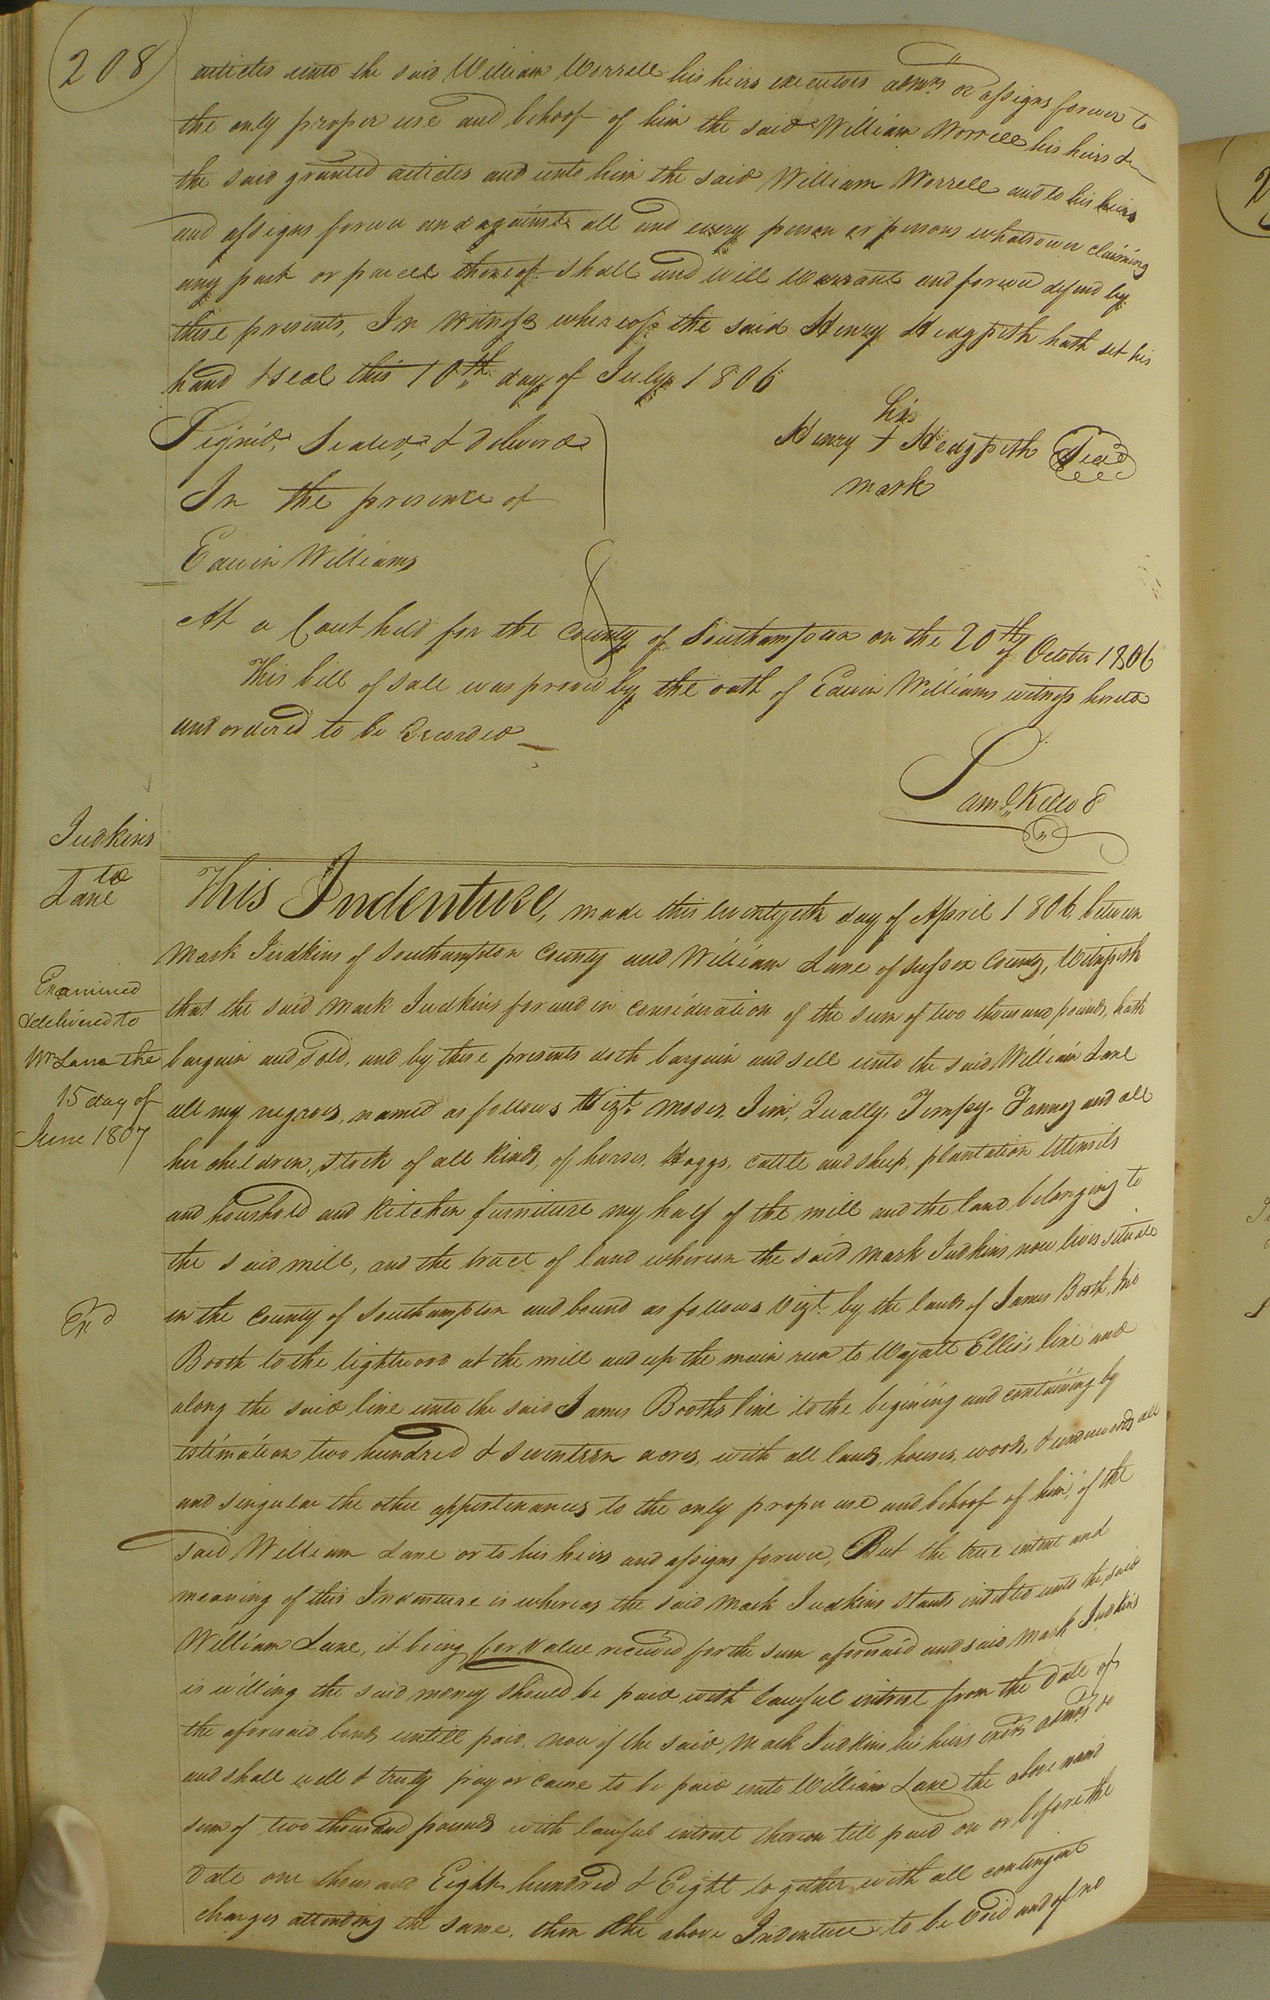 208
articles unto the said William Worrell his heirs executors admrs or assigns forever to
the only proper use and behoof of him the said William Worrell his heirs &
the said granted articles and unto him the said William Worrell and to his heirs
and assigns forever and against all and every person or persons whatsoever claiming
any part or parcell thereof shall and will warrant and forever defend by
these presents, In Witness whereof the said Henry Hedgpeth hath set his
hand & seal this 10th day of July 1806
his
Henry + Hedgpeth Seal
mark
Signed, Sealed, & delivered
In the presence of
Edwin Williams
At a Court held for the County of Southampton on the 20th of October 1806
This bill of sale was proved by the oath of Edwin Williams witness hereto
and ordered to be Recorded
Saml Kello C
Judkins
to
Lane
Examined
& delivered to
Wm Lane the
15 day of
June 1807
Exd
This Indenture, made this twentyeth day of April 1806, between
Mark Judkins of Southampton County and William Lane of Sussex County, Witnesseth
that the said Mark Judkins for and in consideration of the sum of two thousand pounds, hath
bargain and Sold, and by these presents doth bargain and sell unto the said William Lane
all my negroes, named as follows Vizt. Moses, Jim, Qually, Tempy, Fanny and all
her children, stock of all kinds, of horses, Hoggs, cattle and sheep, plantation Utensils
and houshold and Kitchen furniture my half of the mill and the land belonging to
the said mill, and the tract of land whereon the said Mark Judkins now lives situate
in the County of Southampton and bound as follows Vizt. by the lands of James Booth,
Booth to the lightwood at the mill and up the main run to Wyatt Ellis's line and
along the said line unto the said James Booths line to the begining and containing by
estimation two hundred & seventeen acres, with all lands, houses, woods, & underwoods all
and singular the other appertinances to the only proper use and behoof of him, of the
said William Lane or to his heirs and assigns forever, But the true intent and
meaning of this Indenture is whereas the said Mark Judkins stands indebted unto the said
William Lane, it being for value received for the sum aforesaid and said Mark Judkins
is willing the said money should be paid with lawful intrest from the date of
the aforesaid bond untill paid, now if the said Mark Judkins his heirs exors admrs do
and shall well & truly pay or cause to be paid unto William Lane the above named
sum of two thousand pounds with lawful intrest thereon till paid on or before the
date one thousand Eight hundred & Eight together with all contingent
charges attending the same, then the above Indenture to be Void and of no